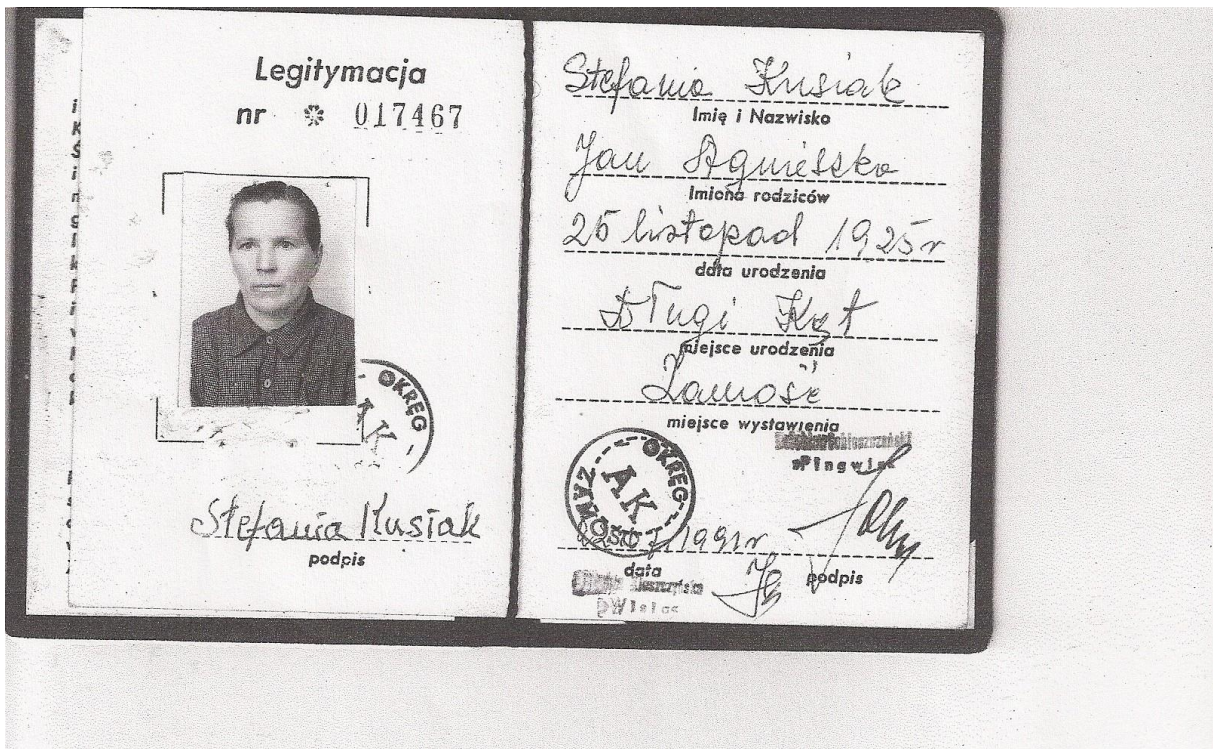 Legitymacja
nr 017467
OKRĘG
AK
Stefania Kusiak
podpis
Stefania Kusiak
Imię i Nazwisko
Jan Agnieszka
Imiona rodziców
25 listopad 1925r
data urodzenia
Długi Kąt
miejsce urodzenia
Zamość
miejsce wystawienia
OKRĘG
AK
ZAMOŚĆ
1991r
data
podpis